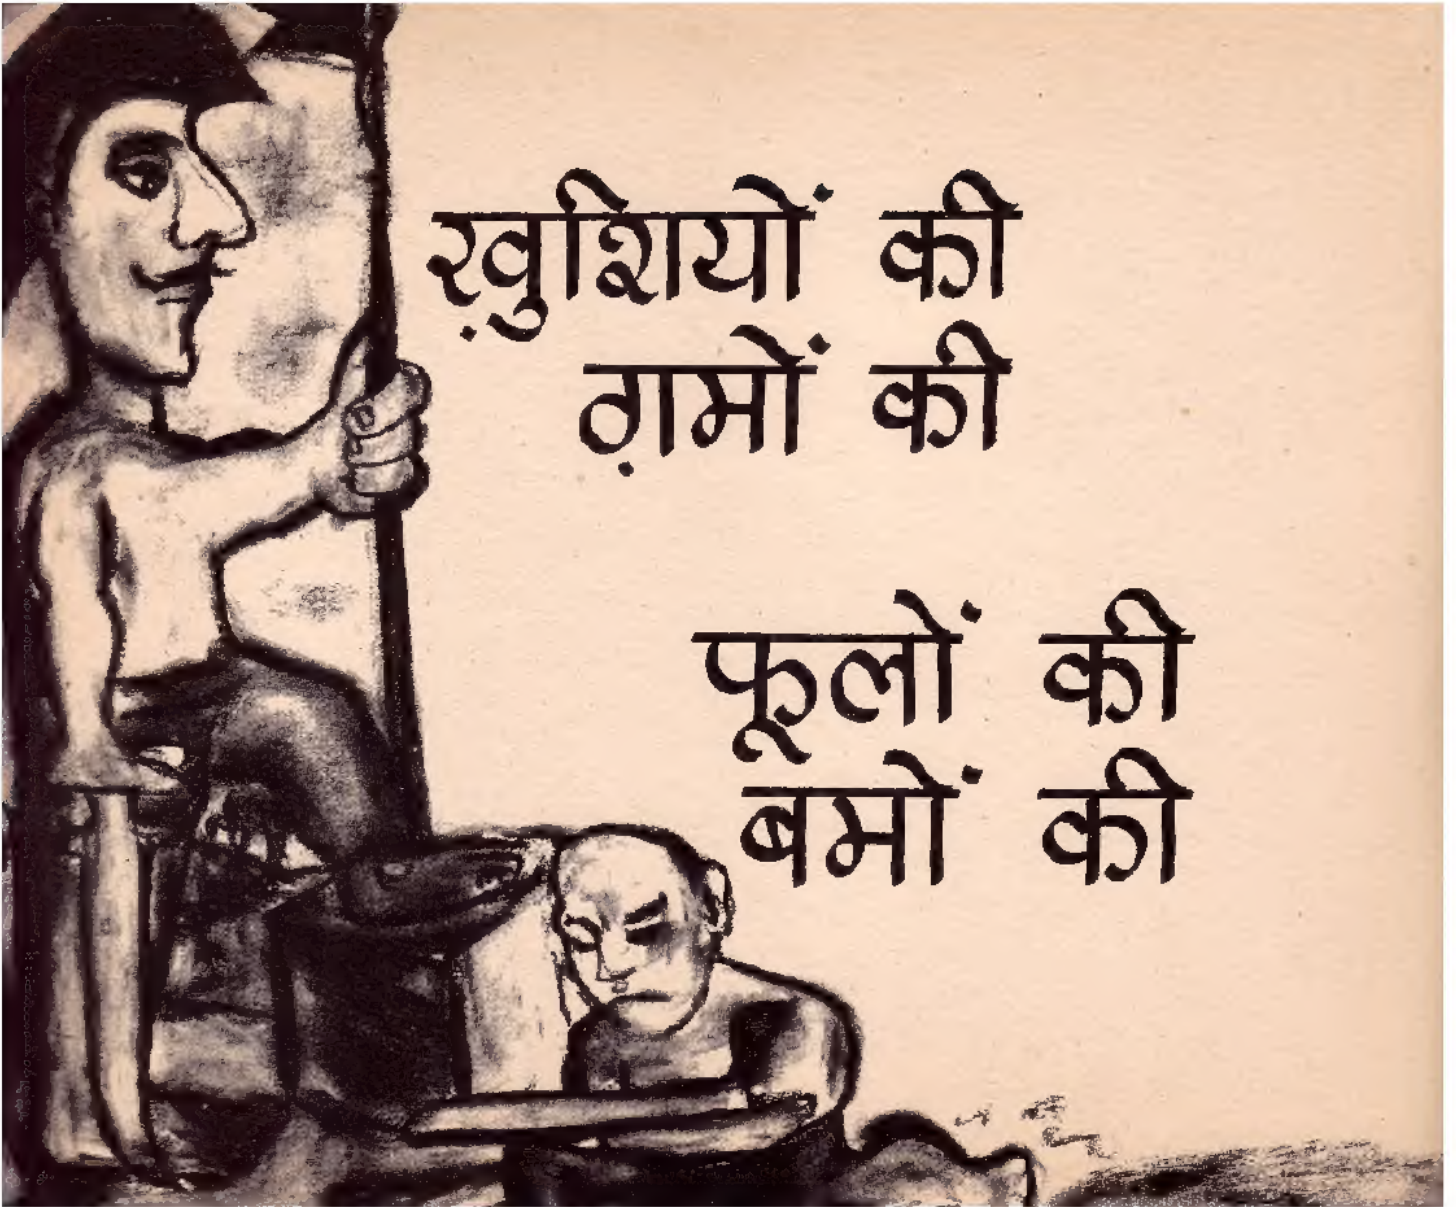 ख़ुशियों की
ग़मों की
फूलों की
बमों की